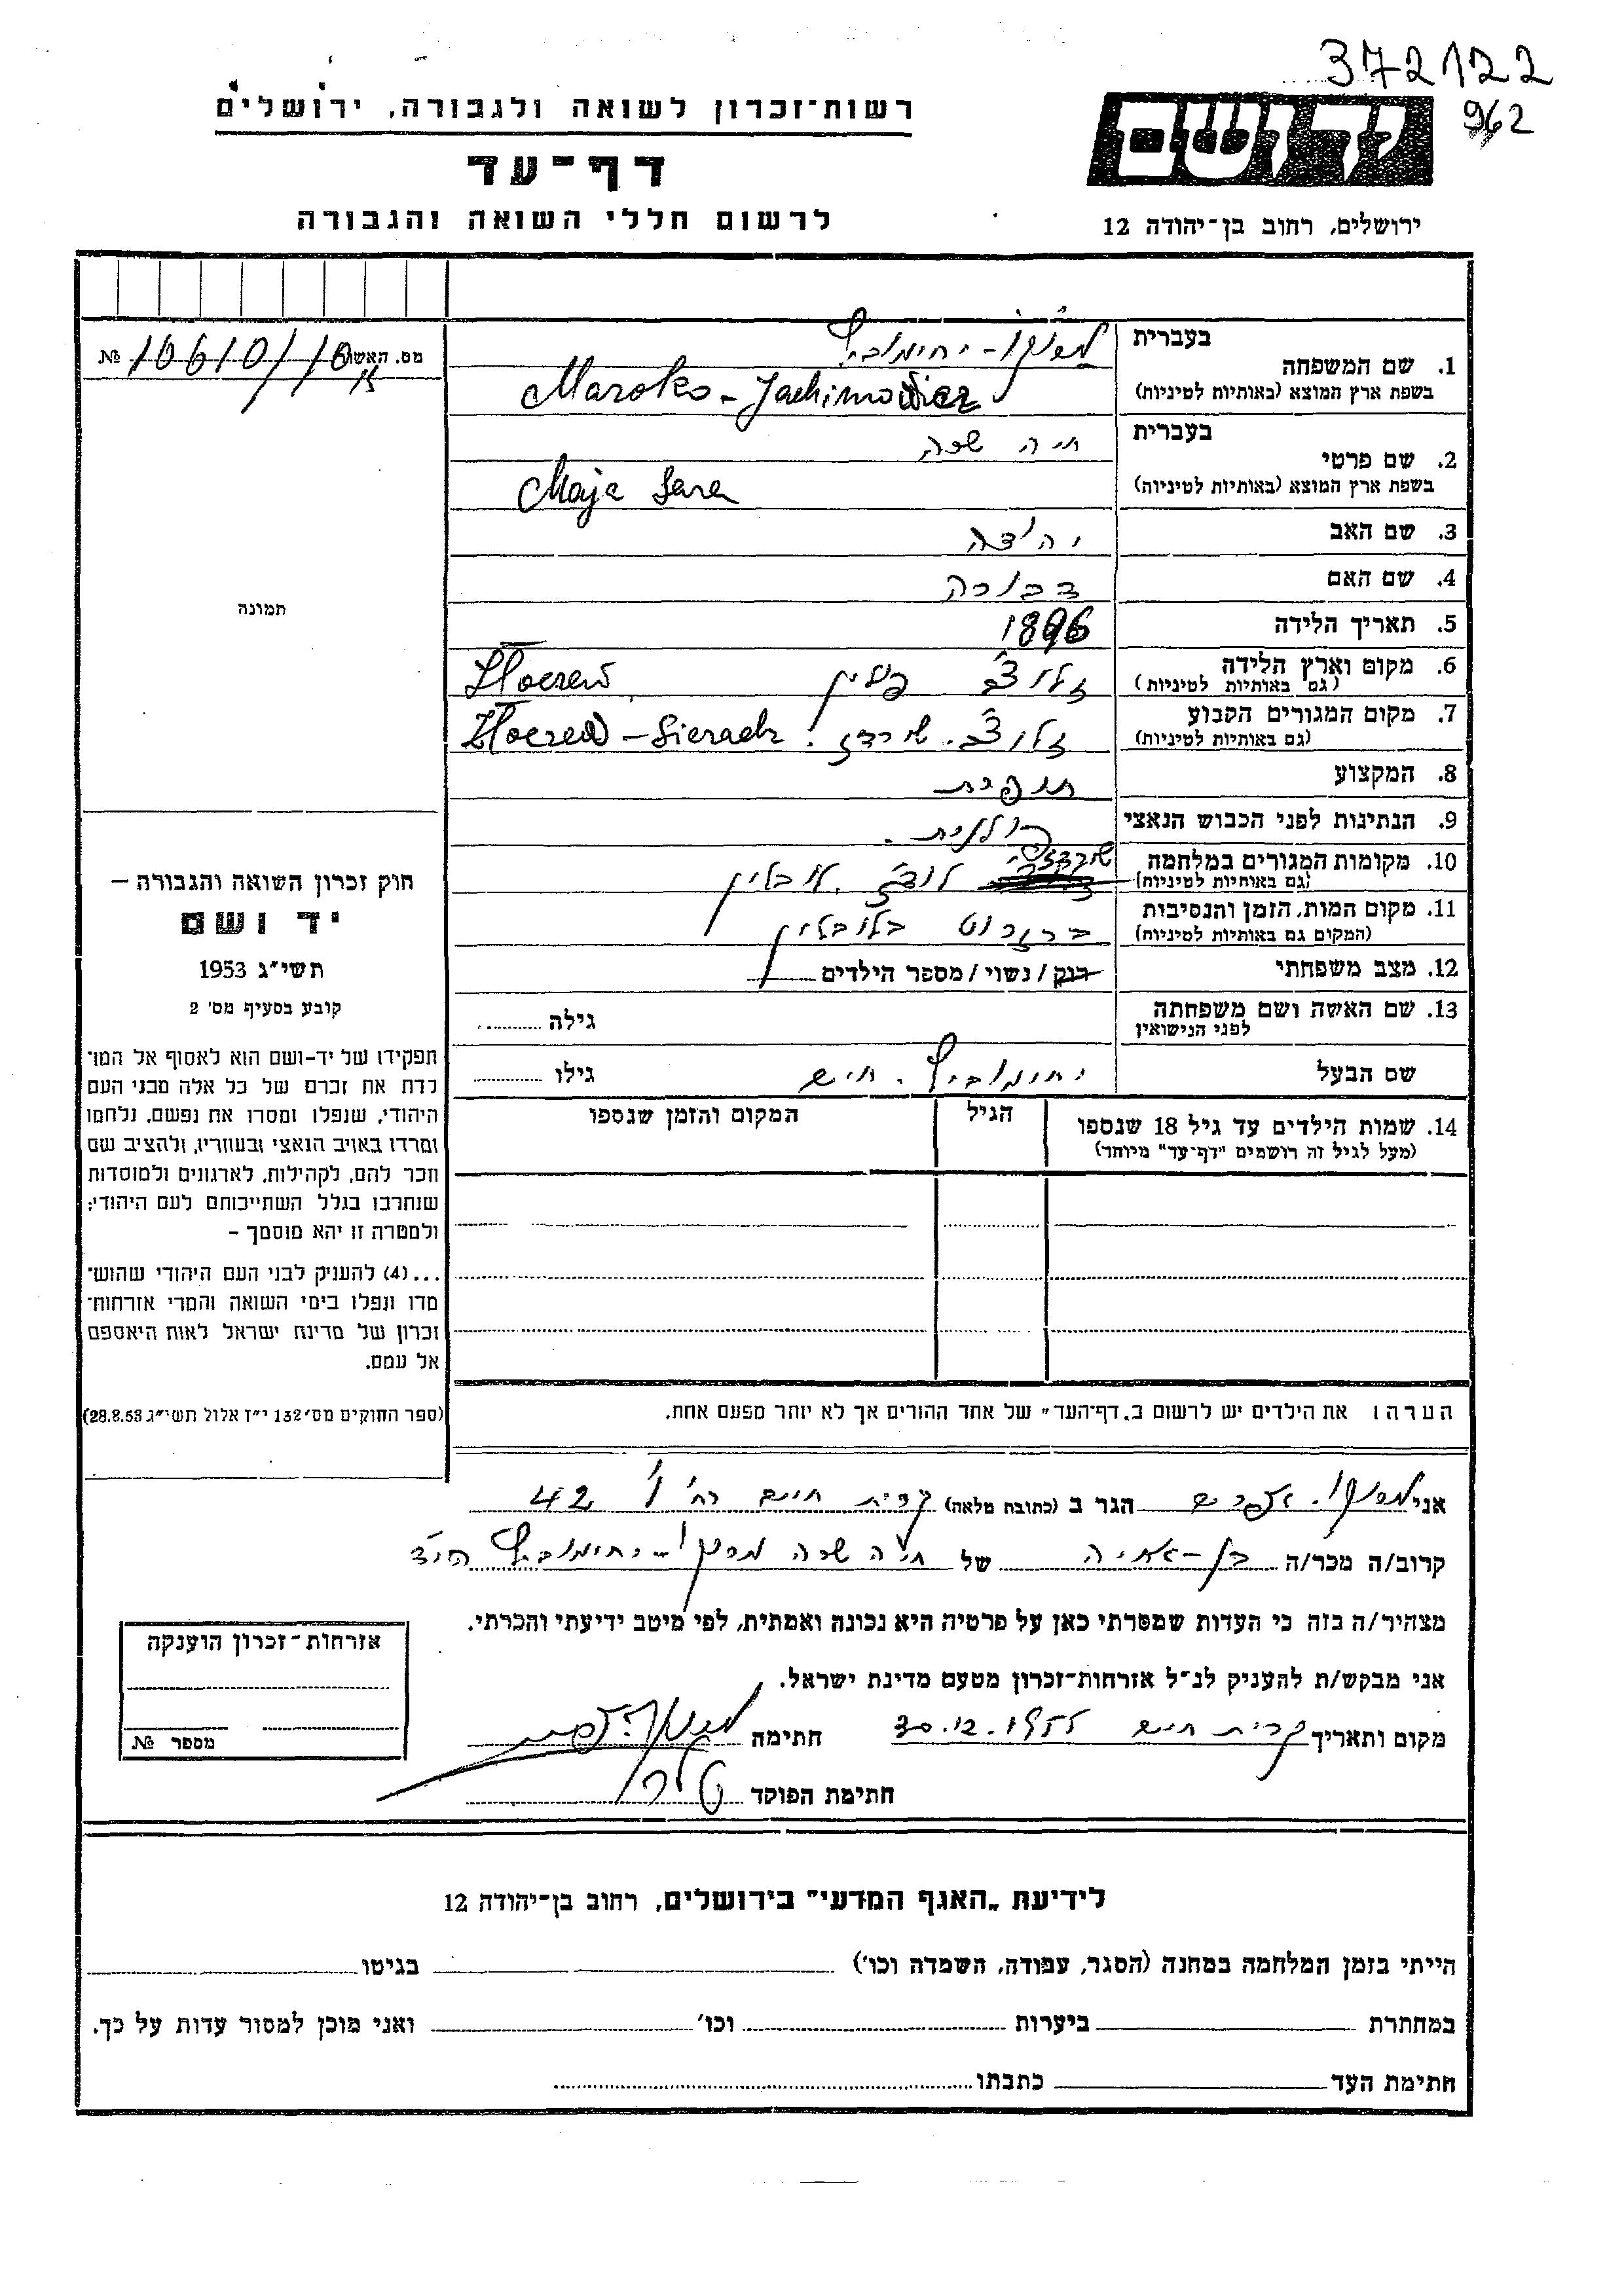 372122
962
רשות־זכרון לשואה ולגבורה, ירושלים
דף־עד
לרשום חללי השואה והגבורה
יד ושם
ירושלים, רחוב בן־יהודה 12
מס. האשה № 10610/10
1. שם המשפחה
בעברית
מרוקו - יחימוביץ
בשפת ארץ המוצא (באותיות לטיניות)
Maroko - Jachimowicz
2. שם פרטי
בעברית
חיה שרה
בשפת ארץ המוצא (באותיות לטיניות)
Maja Sara
3. שם האב יהודה
4. שם האם דבורה
5. תאריך הלידה 1896
6. מקום וארץ הלידה
(גם באותיות לטיניות)
פולין Złoczew
7. מקום המגורים הקבוע
(גם באותיות לטיניות)
Złoczew - Sieradz
8. המקצוע תופרת
9. הנתינות לפני הכבוש הנאצי פולנית.
10. מקומות המגורים במלחמה
(גם באותיות לטיניות)
לודז, לובלין
11. מקום המות, הזמן והנסיבות
(המקום גם באותיות לטיניות)
בגטו בלובלין
12. מצב משפחתי רוק / נשוי / מספר הילדים
13. שם האשה ושם משפחתה
לפני הנישואין
גילה
שם הבעל יחימוביץ. חיים גילו
14. שמות הילדים עד גיל 18 שנספו
(מעל לגיל זה רושמים "דף־עד" מיוחד)
הגיל
המקום והזמן שנספו
הערה: את הילדים יש לרשום ב„דף־העד" של אחד ההורים אך לא יותר מפעם אחת.
תמונה
חוק זכרון השואה והגבורה –
יד ושם
תשי"ג 1953
קובע בסעיף מס' 2
תפקידו של יד-ושם הוא לאסוף אל המו־
לדת את זכרם של כל אלה מבני העם
היהודי, שנפלו ומסרו את נפשם, נלחמו
ומרדו באויב הנאצי ובעוזריו, ולהציב שם
וזכר להם, לקהילות, לארגונים ולמוסדות
שנחרבו בגלל השתייכותם לעם היהודי;
ולמטרה זו יהא מוסמך –
...(4) להעניק לבני העם היהודי שהוש־
מדו ונפלו בימי השואה והמרי אזרחות־
זכרון של מדינת ישראל לאות היאספם
אל עמם.
(ספר החוקים מס' 132 י"ז אלול תשי"ג 28.8.53)
אני מרוקו. אפרים הגר ב (כתובת מלאה) קרית חיים רח' ו' 42
קרוב/ה מכר/ה בן-אחיה של חיה שרה מרוקו - יחימוביץ הי"ד
מצהיר/ה בזה כי העדות שמסרתי כאן על פרטיה היא נכונה ואמתית, לפי מיטב ידיעתי והכרתי.
אני מבקש/ת להעניק לנ"ל אזרחות-זכרון מטעם מדינת ישראל.
מקום ותאריך קרית חיים 30.12.1955 חתימה
חתימת הפוקד
אזרחות־זכרון הוענקה
מספר №
לידיעת „האגף המדעי" בירושלים, רחוב בן־יהודה 12
הייתי בזמן המלחמה במחנה (הסגר, עבודה, השמדה וכו') בגיטו
במחתרת ביערות וכו' ואני מוכן למסור עדות על כך.
חתימת העד כתבתו